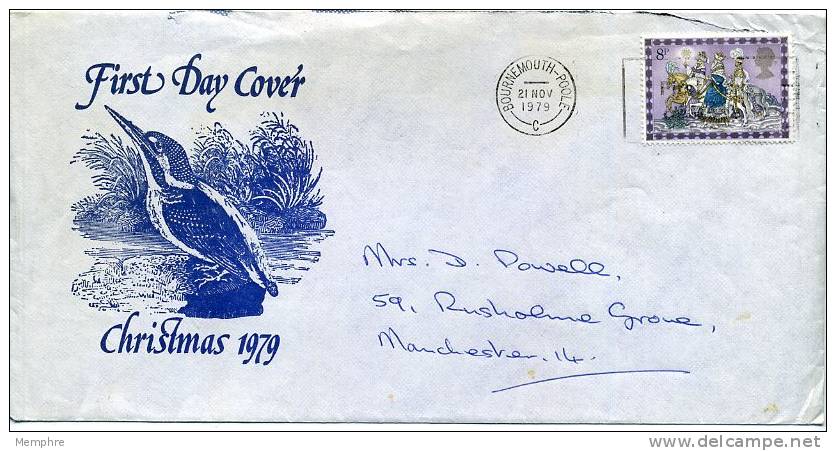 First Day Cover
BOURNEMOUTH-POOLE
21 NOV
1979
C
8P
Mrs. D. Powell,
59, Rusholme Grove,
Manchester. 14.
Christmas 1979
Memphre
www.delcampe.net